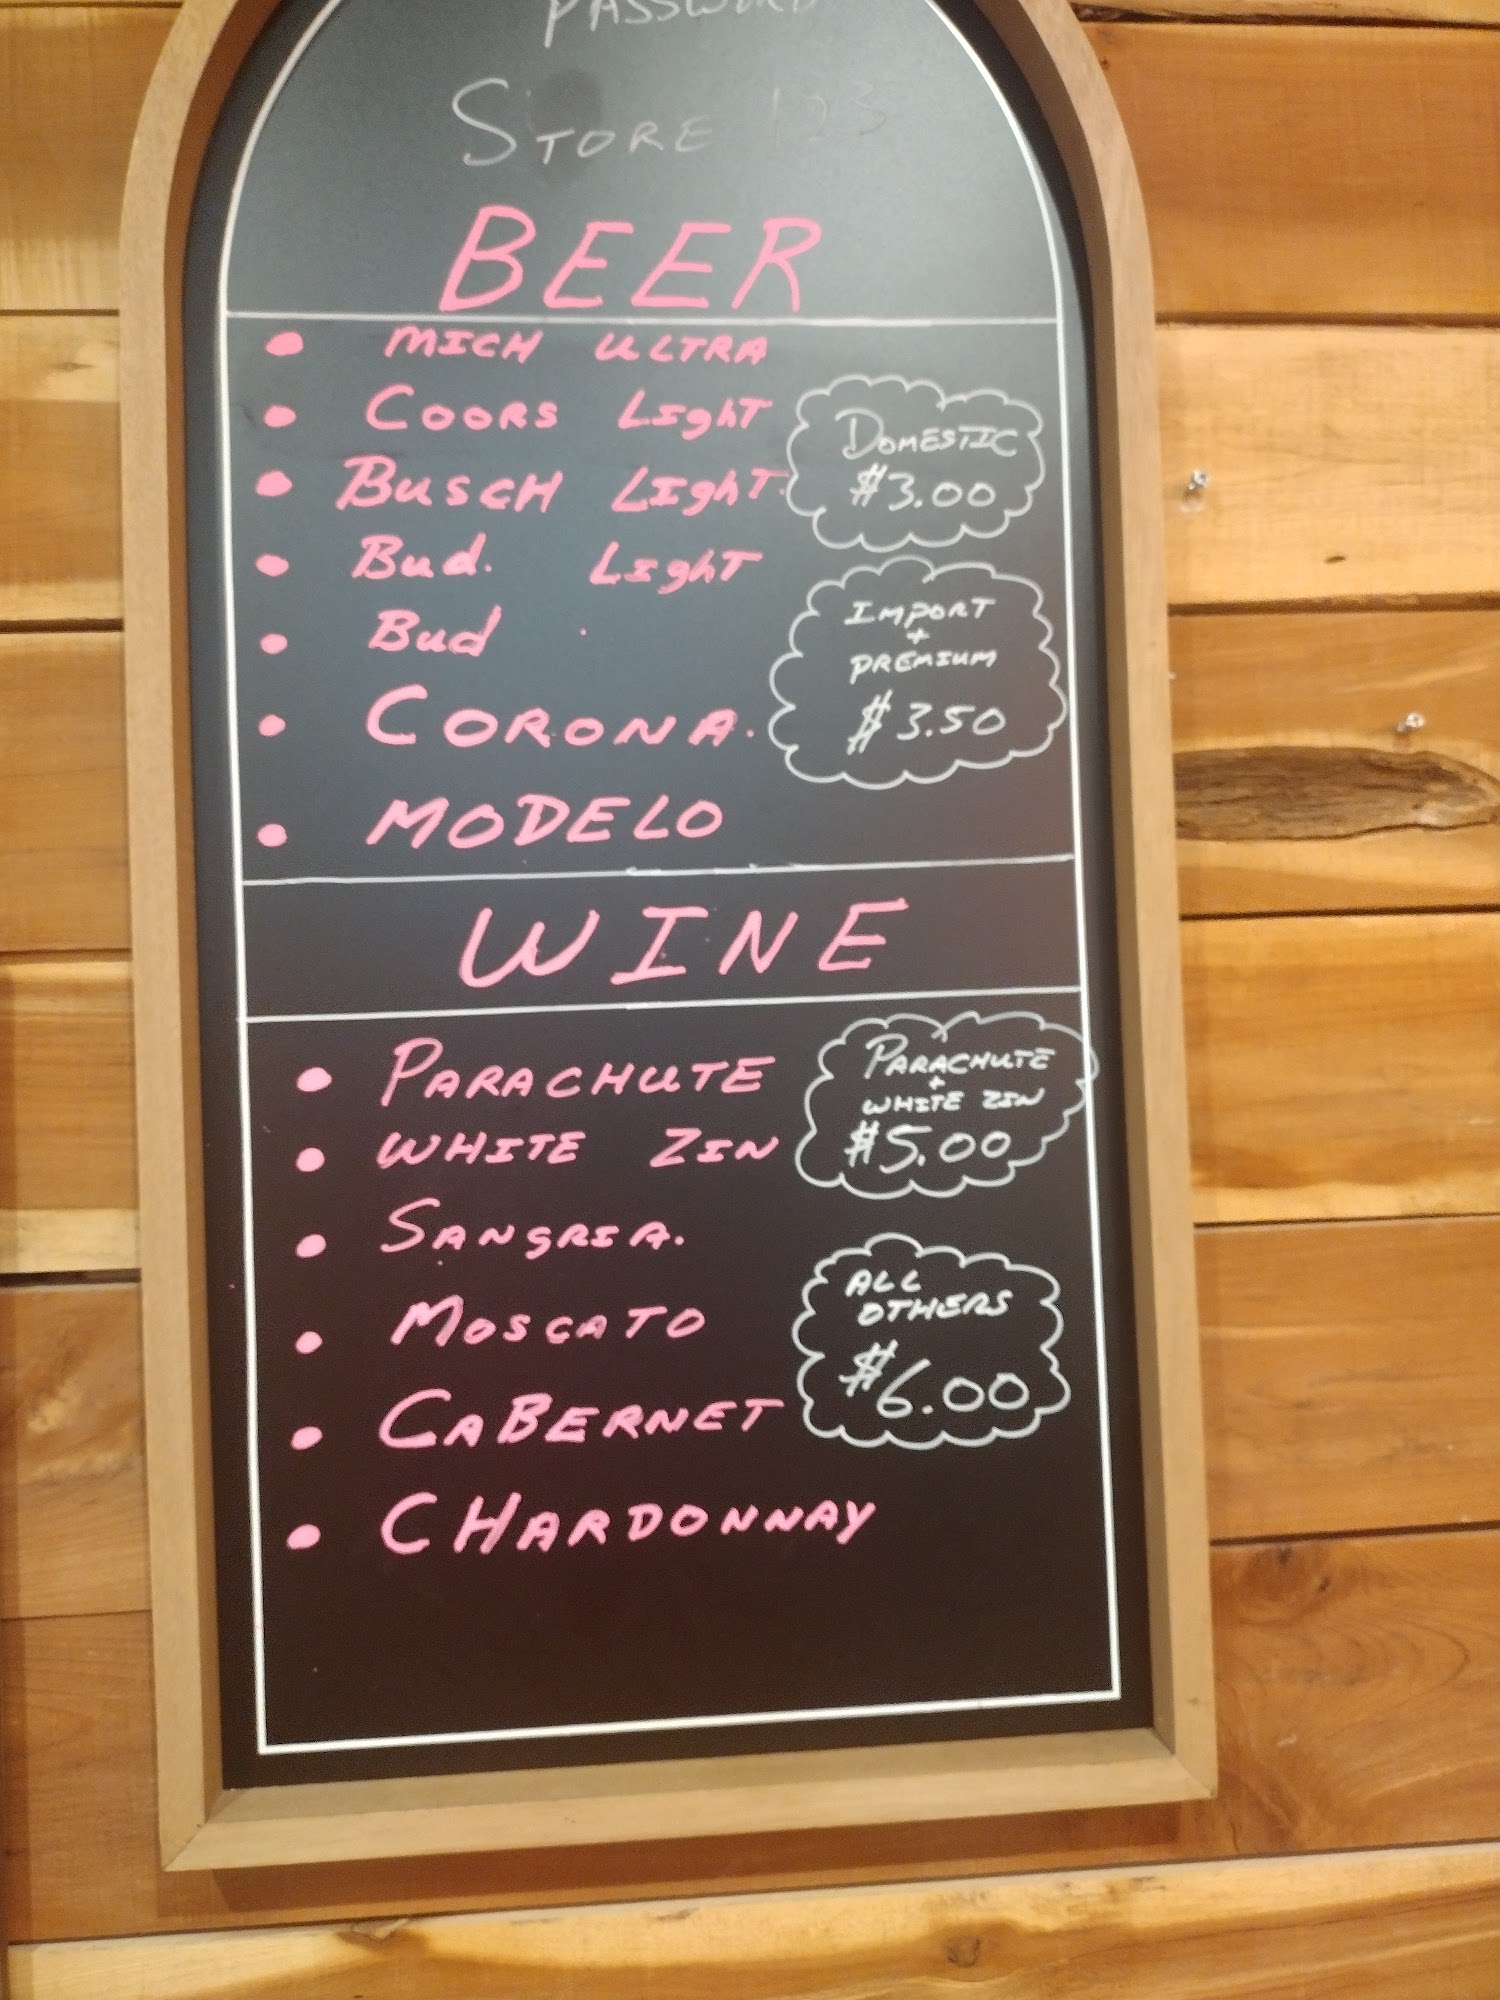 PASSWORD
STORE 123
BEER
MICH ULTRA
COORS LIghT
BUSCH LIghT.
Bud. LIghT
Bud
CORONA.
MODELO
DOMESTIC
$3.00
IMPORT
+
PREMIUM
$3.50
WINE
PARACHUTE
WHITE ZIN
SANGRIA.
MOSCATO
CABERNET
CHARDONNAY
PARACHUTE
+
WHITE ZIN
$5.00
ALL
OTHERS
$6.00